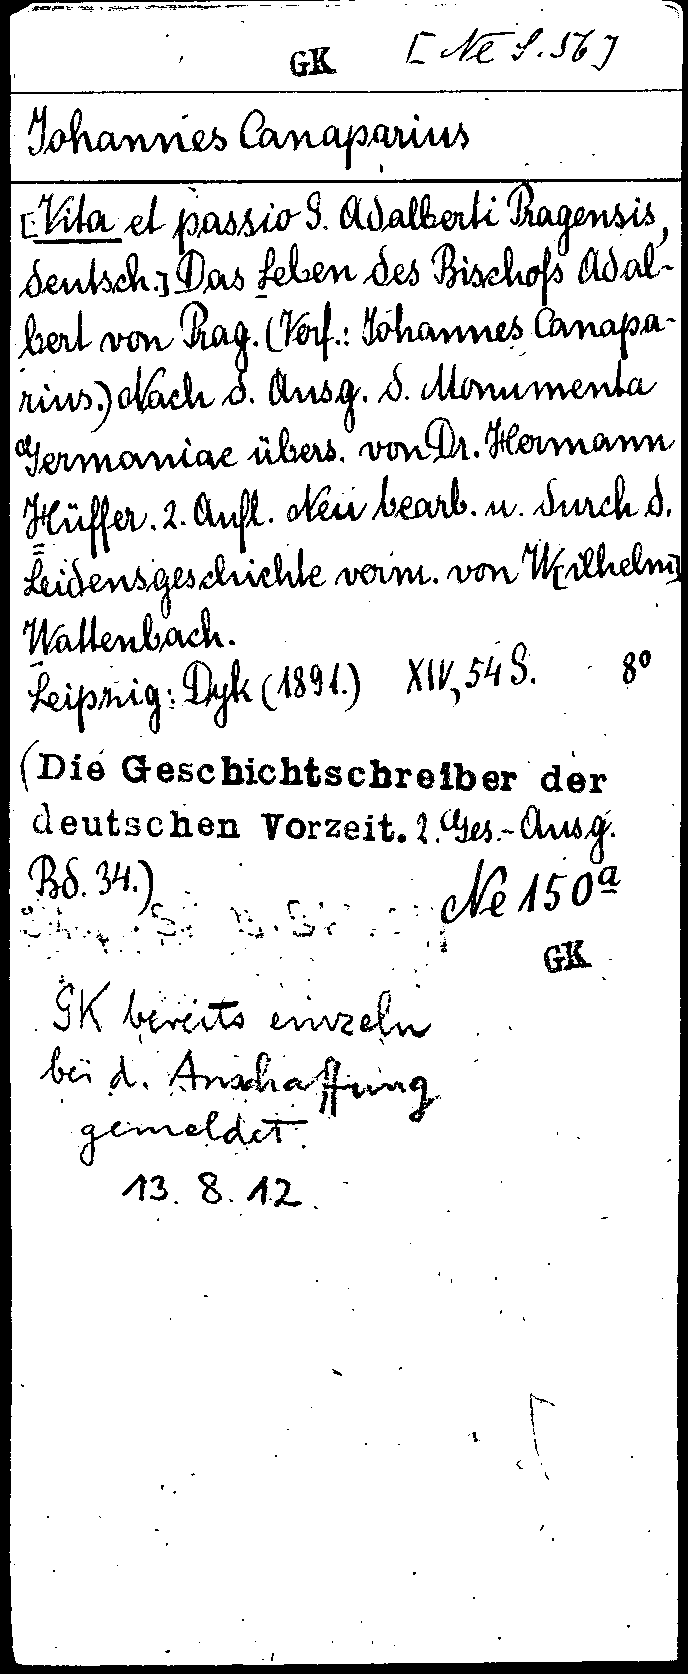 GK [Ne S. 56]
Johannes Canaparius
[Vita et passio S. Adalberti Pragensis,
deutsch.] Das Leben des Bischofs Adal-
bert von Prag. (Verf.: Johannes Canapa-
rius.) Nach d. Ausg. d. Monumenta
Germaniae übers. von Dr. Hermann
Hüffer. 2. Aufl. Neu bearb. u. durch d.
Leidensgeschichte verm. von W[ilhelm]
Wattenbach.
Leipzig: Dyk (1891.) XIV, 54 S. 8°
(Die Geschichtschreiber der
deutschen Vorzeit. 2. Ges.-Ausg.
Bd. 34.)
Ne 150a
GK
GK bereits einzeln
bei d. Anschaffung
gemeldet.
13. 8. 12.